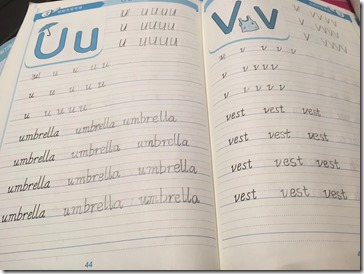 Uu
u u u u
u u u u
u u u u
u u u u u
u u u u
u u u u
umbrella umbrella umbrella
umbrella umbrella umbrella
umbrella umbrella umbrella
umbrella umbrella umbrella
44
Vv
v v v v v
v v v v
v v v v
v v v v v
v v v v v
v v v v v
vest vest vest
vest vest vest
vest vest vest
vest vest vest